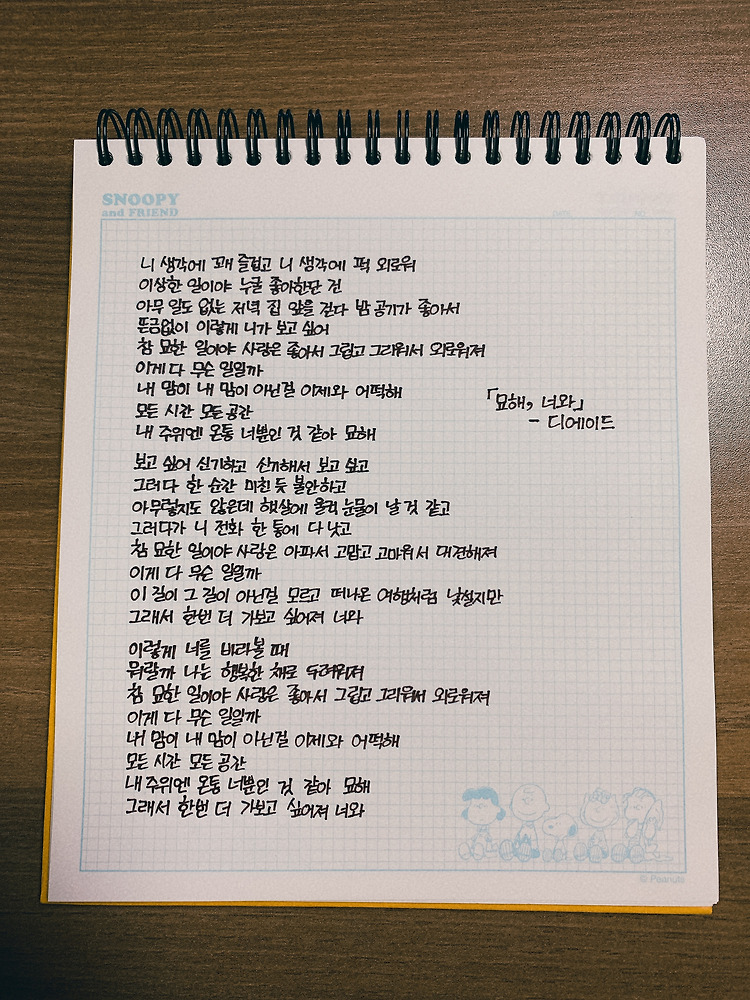 SNOOPY
and FRIEND
DATE
NO
니 생각에 꽤 즐겁고 니 생각에 퍽 외로워
이상한 일이야 누굴 좋아한단 건
아무 일도 없는 저녁 집 앞을 걷다 밤 공기가 좋아서
뜬금없이 이렇게 니가 보고 싶어
참 묘한 일이야 사랑은 좋아서 그립고 그리워서 외로워져
이게 다 무슨 일일까
내 맘이 내 맘이 아닌걸 이제와 어떡해
모든 시간 모든 공간
내 주위엔 온통 너뿐인 것 같아 묘해
「묘해, 너와」
- 디에이드
보고 싶어 신기하고 신기해서 보고 싶고
그러다 한 순간 미친 듯 불안하고
아무렇지도 않은데 햇살에 울컥 눈물이 날 것 같고
그러다가 니 전화 한 통에 다 낫고
참 묘한 일이야 사랑은 아파서 고맙고 고마워서 대견해져
이게 다 무슨 일일까
이 길이 그 길이 아닌걸 모르고 떠나온 여행처럼 낯설지만
그래서 한번 더 가보고 싶어져 너와
이렇게 너를 바라볼 때
뭐랄까 나는 행복한 채로 두려워져
참 묘한 일이야 사랑은 좋아서 그립고 그리워서 외로워져
이게 다 무슨 일일까
내 맘이 내 맘이 아닌걸 이제와 어떡해
모든 시간 모든 공간
내 주위엔 온통 너뿐인 것 같아 묘해
그래서 한번 더 가보고 싶어져 너와
© Peanuts